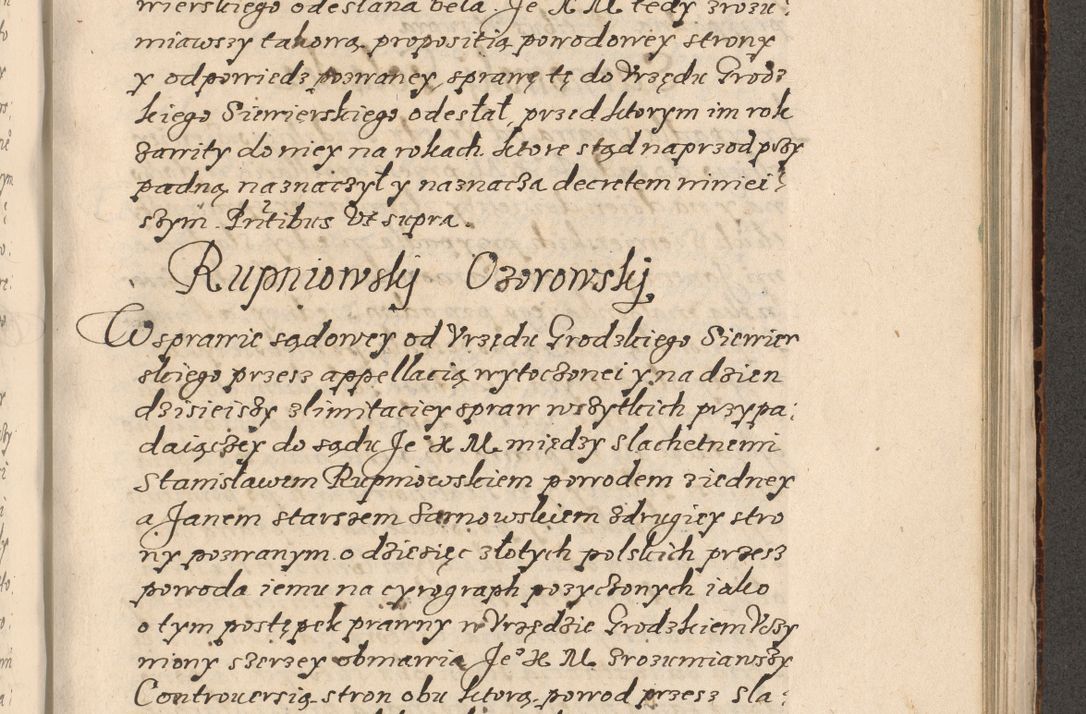 wierskiego odesłana beła. Je X M tedy zrozu
miawszy takową propositią powodowey strony
y odpowiedz pozwaney, sprawę tę do Vrzędu Grodz
kiego Siewierskiego odesłał, przed ktorym im rok
zawity do niey na rokach ktore stąd naprzod przy
padną naznaczył y naznacza decretem niniei
szym. Pntibus Vt supra.
Rupniowskij Ozorowskij
W sprawie sądowey od Vrzędu Grodzkiego Siewier
skiego przesz appellacią wytoczonei y na dzien
dzisieiszy z limitaciey spraw wszytkich przypa
daiączey do sądu Je° X M. między slachetnemi
Stanisławem Rupniowskiem powodem z iedney
a Janem starszem Sarnowskiem z drugiey stro
ny pozwanym. o dziesięc złotych polskich przesz
powoda iemu na cyrograph pozyczonych iako
o tym postępek prawny w Vrzędzie Grodzkiem Vczy
niony szerzey obmawia, Je° X M. zrozumiawszy
Controuersią stron obu ktorą powod przesz sla